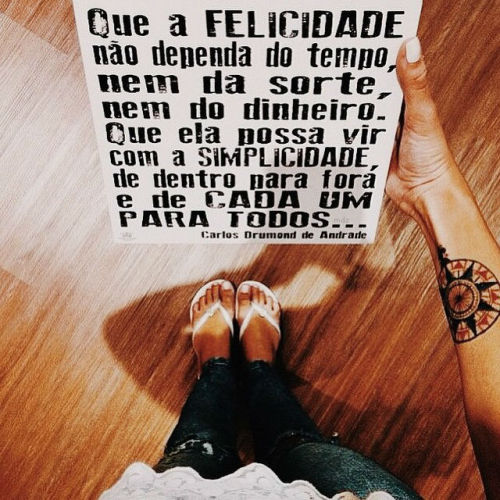 Que a FELICIDADE
não dependa do tempo,
nem da sorte,
nem do dinheiro.
Que ela possa vir
com a SIMPLICIDADE,
de dentro para fora
e de CADA UM
PARA TODOS...
Carlos Drumond de Andrade